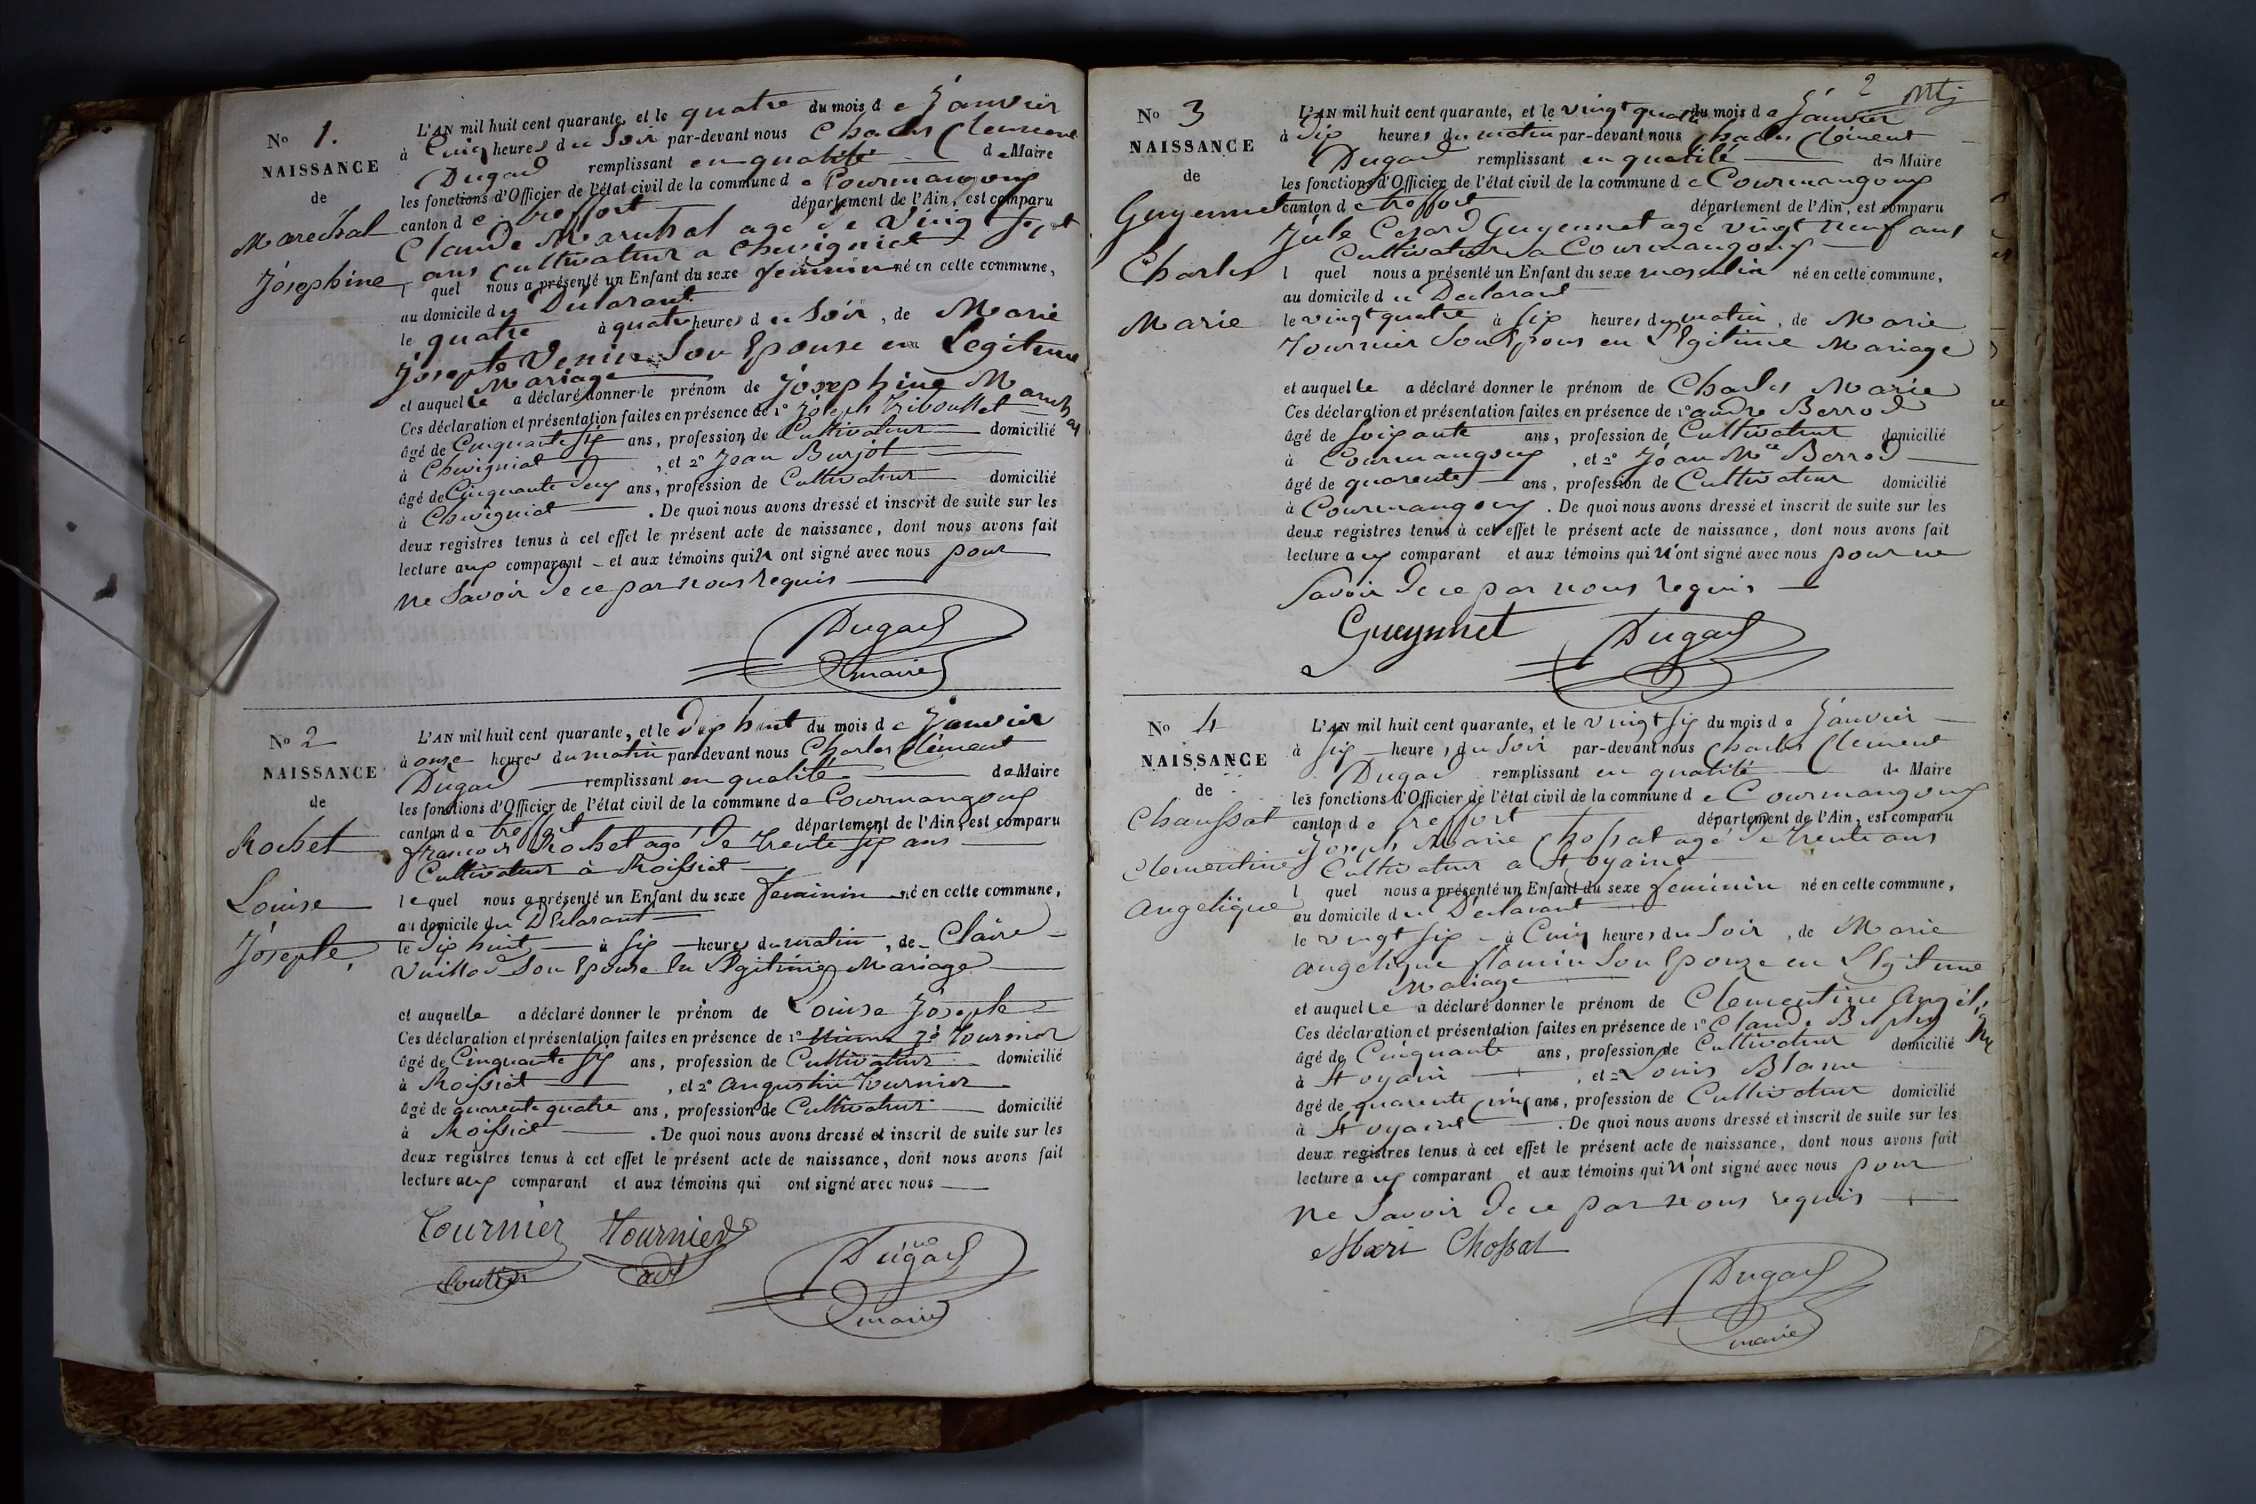 No 1.
NAISSANCE
de
Marechal
Josephine
L'AN mil huit cent quarante, et le quatre du mois de Janvier
à Cinq heures du Soir par-devant nous Charles Clement
Dugad remplissant en qualité de Maire
les fonctions d'Officier de l'état civil de la commune de Courmangoux
canton de treffort département de l'Ain, est comparu
Claude Marechal age de Vingt Sept
ans cultivateur a Chevigniat
l quel nous a présenté un Enfant du sexe feminin né en cette commune,
au domicile du Déclarant
le quatre à quatre heures du Soir, de Marie
Josephte Venin Son Epouse en Legitime
Mariage
et auquelle a déclaré donner le prénom de Josephine Marechal
Ces déclaration et présentation faites en présence de 1º Joseph Triboullet
âgé de Cinquante Six ans, profession de Cultivateur domicilié
à Chevigniat, et 2º Jean Burjot
âgé de Cinquante Deux ans, profession de Cultivateur domicilié
à Chevigniat. De quoi nous avons dressé et inscrit de suite sur les
deux registres tenus à cet effet le présent acte de naissance, dont nous avons fait
lecture aux comparant et aux témoins qui n ont signé avec nous pour
ne Savoir de ce par nous requis
Dugad
maire
No 2
NAISSANCE
de
Rochet
Louise
Josephte,
L'AN mil huit cent quarante, et le Dix huit du mois de Janvier
à onze heures du matin par-devant nous Charles Clément
Dugad remplissant en qualité de Maire
les fonctions d'Officier de l'état civil de la commune de Courmangoux
canton de treffort département de l'Ain, est comparu
francois Rochet agé De Trente Six ans
Cultivateur à Roissiat
le quel nous a présenté un Enfant du sexe feminin né en cette commune,
au domicile du Déclarant
le Dix huit à Six heures du matin, de Claire
Vuillod Son Epouse En Légitime Mariage
et auquelle a déclaré donner le prénom de Louise Josephte
Ces déclaration et présentation faites en présence de 1º Jh Tournier
âgé de Cinquante Six ans, profession de Cultivateur domicilié
à Roissiat, et 2º Augustin Tournier
âgé de quarente quatre ans, profession de Cultivateur domicilié
à Roissiat. De quoi nous avons dressé et inscrit de suite sur les
deux registres tenus à cet effet le présent acte de naissance, dont nous avons fait
lecture aux comparant et aux témoins qui ont signé avec nous
Tournier Tournier
Dugad
maire
2
No 3
NAISSANCE
de
Guyennet
Charles
Marie
L'AN mil huit cent quarante, et le vingt quatre du mois de Janvier
à Dix heures du matin par-devant nous Charles Clément
Dugad remplissant en qualité de Maire
les fonctions d'Officier de l'état civil de la commune de Courmangoux
canton de treffort département de l'Ain, est comparu
Jule Cezard Guyennet agé vingt neuf ans
Cultivateur a Courmangoux
l quel nous a présenté un Enfant du sexe masculin né en cette commune,
au domicile du Déclarant
le vingt quatre à Six heures du matin, de Marie
Tournier Son Epous en Légitime Mariage
et auquelle a déclaré donner le prénom de Charles Marie
Ces déclaration et présentation faites en présence de 1º andre Berrod
âgé de Soixante ans, profession de Cultivateur domicilié
à Courmangoux, et 2º Jean Mie Berrod
âgé de quarente ans, profession de Cultivateur domicilié
à Courmangoux. De quoi nous avons dressé et inscrit de suite sur les
deux registres tenus à cet effet le présent acte de naissance, dont nous avons fait
lecture aux comparant et aux témoins qui n'ont signé avec nous pour ne
Savoir De ce par nous requis
Gueynnet Dugad
No 4
NAISSANCE
de
Chaussat
Clementine
Angelique
L'AN mil huit cent quarante, et le vingt Six du mois de Janvier
à Six heures du Soir par-devant nous Charles Clement
Dugad remplissant en qualité de Maire
les fonctions d'Officier de l'état civil de la commune de Courmangoux
canton de treffort département de l'Ain, est comparu
Joseph Marie Chossat agé De trente ans
Cultivateur a St oyaine
l quel nous a présenté un Enfant du sexe feminin né en cette commune,
au domicile du Déclarant
le vingt Six à Cinq heures du Soir, de Marie
Angelique flamin Son Epouze en Légitime
Mariage
et auquelle a déclaré donner le prénom de Clementine Angélique
Ces déclaration et présentation faites en présence de 1º Claude
âgé de Cinquante ans, profession de Cultivateur domicilié
à St oyain, et 2º Louis Blanc
âgé de quarente cinq ans, profession de Cultivateur domicilié
à St oyaine. De quoi nous avons dressé et inscrit de suite sur les
deux registres tenus à cet effet le présent acte de naissance, dont nous avons fait
lecture aux comparant et aux témoins qui n'ont signé avec nous pour
ne Savoir De ce par nous requis
Mari Chossat
Dugad
maire